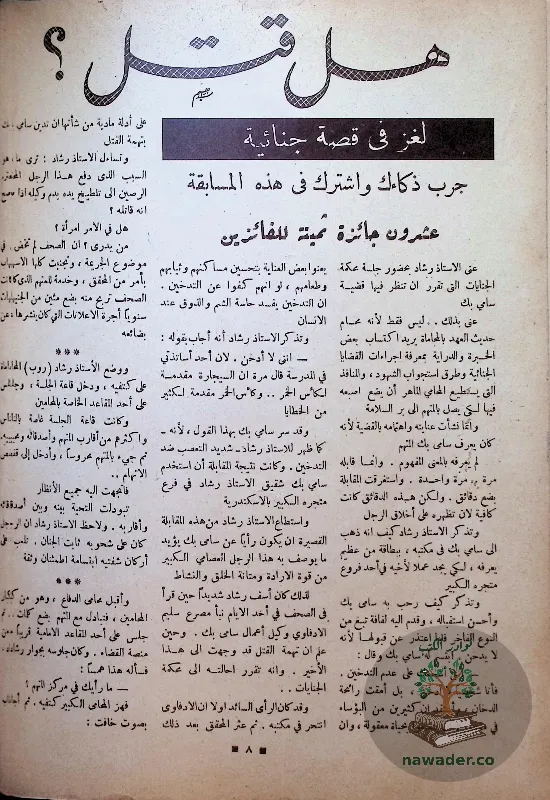 هل قتل ؟
لغز فى قصة جنائية
جرب ذكاءك واشترك فى هذه المسابقة
عشرون جائزة ثمينة للفائزين
عنى الاستاذ رشاد بحضور جلسة محكمة
الجنايات التى تقرر ان تنظر فيها قضية
سامى بك
عنى بذلك .. ليس فقط لأنه محام
حديث العهد بالمحاماة يريد اكتساب بعض
الخبرة والدراية بمعرفة اجراءات القضايا
الجنائية وطرق استجواب الشهود ، والمنافذ
التى يستطيع المحامى الماهر أن يضع اصبعه
فيها لكى يصل بالمتهم الى بر السلامة
وانما نشأت عنايته واهتمامه بالقضية لأنه
كان يعرف سامى بك المتهم
لم يعرفه بالمعنى المفهوم . وانما قابله
مرة مرة واحدة . واستغرقت المقابلة
بضع دقائق . ولكن هذه الدقائق كانت
كافية لان تظهره على أخلاق الرجل
وتذكر الاستاذ رشاد كيف انه ذهب
الى سامى بك فى مكتبه ، ببطاقة من عظيم
يعرفه ، لكى يجد عملا لأخيه فى أحد فروع
متجره الكبير
وتذكر كيف رحب به سامى بك
وأحسن استقباله ، وقدم اليه لفافة تبغ من
النوع الفاخر فلما اعتذر عن قبولها لأنه
لا يدخن ، ابتسم له سامى بك وقال :
على عدم التدخين .
بل أمقت رائحة
الدخان كثيرين من البؤساء
بحياة معقولة ، وان
يعنوا بعض العناية بتحسين مساكنهم وثيابهم
وطعامهم ، لو انهم كفوا عن التدخين .
ان التدخين يفسد حاسة الشم والذوق عند
الانسان
وتذكر الاستاذ رشاد أنه أجاب بقوله :
— اننى لا أدخن . لان أحد أساتذتى
فى المدرسة قال مرة ان السيجارة مقدمة
لكأس الخمر .. وكأس الخمر مقدمة لكثير
من الخطايا
وقد سر سامى بك بهذا القول ، لأنه ـ
كما ظهر للاستاذ رشاد ـ شديد التعصب ضد
التدخين . وكانت نتيجة المقابلة أن استخدم
سامى بك شقيق الاستاذ رشاد فى فرع
متجره الكبير بالاسكندرية
واستطاع الاستاذ رشاد من هذه المقابلة
القصيرة ان يكون رأيا عن سامى بك يؤيد
ما يوصف به هذا الرجل العصامى الكبير
من قوة الارادة ومتانة الخلق والنشاط
لذلك كان أسف رشاد شديداً حين قرأ
فى الصحف فى أحد الايام نبأ مصرع سليم
الادفاوى وكيل أعمال سامى بك . وحين
علم ان تهمة القتل قد وجهت الى هذا
الأخير . وانه تقرر احالته الى محكمة
الجنايات ..
وقد كان الرأى السائد اولا ان الادفاوى
انتحر فى مكتبه . ثم عثر المحقق بعد ذلك
على أدلة مادية من شأنها ان تدين سامى بك
بتهمة القتل
وتساءل الاستاذ رشاد : ترى ما هو
السبب الذى دفع هذا الرجل المحترم
الرصين الى تلطيخ يده بدم وكيله اذا صح
انه قاتله ؟
هل فى الامر امرأة ؟
من يدرى ؟ ان الصحف لم تخض فى
موضوع الجريمة ، وتجنبت كلها الاسهاب
بأمر من المحقق ، وخدمة للمتهم الذى كانت
الصحف تربح منه بضع مئين من الجنيهات
سنويا أجرة الاعلانات التى كان ينشرها عن
بضائعه
***
ووضع الأستاذ رشاد (روب) المحاماة
على كتفيه ، ودخل قاعة الجلسة ، وجلس
على أحد المقاعد الخاصة بالمحامين
وكانت قاعة الجلسة غاصة بالناس
واكثرهم من أقارب المتهم وأصدقائه ومحبيه .
ثم جىء بالمتهم محروسا ، وأدخل إلى قفص
الاتهام ..
فاتجهت اليه جميع الأنظار
تبودلت التحية بينه وبين أصدقائه
وأقاربه . ولاحظ الاستاذ رشاد ان الرجل
كان على شحوبه ثابت الجنان . تلعب على
أركان شفتيه ابتسامة اطمئنان وثقة
***
وأقبل محامى الدفاع ، وهو من كبار
المحامين ، فتبادل مع المتهم بضع كلمات .. ثم
جلس على أحد المقاعد الامامية قريباً من
منصة القضاء . وكان جلوسه بجوار رشاد .
فسأله هذا همساً :
— ما رأيك فى مركز المتهم ؟
فهز المحامى الكبير كتفيه . ثم أجاب
بصوت خافت :
٨
نوادر الكتب
nawader.co